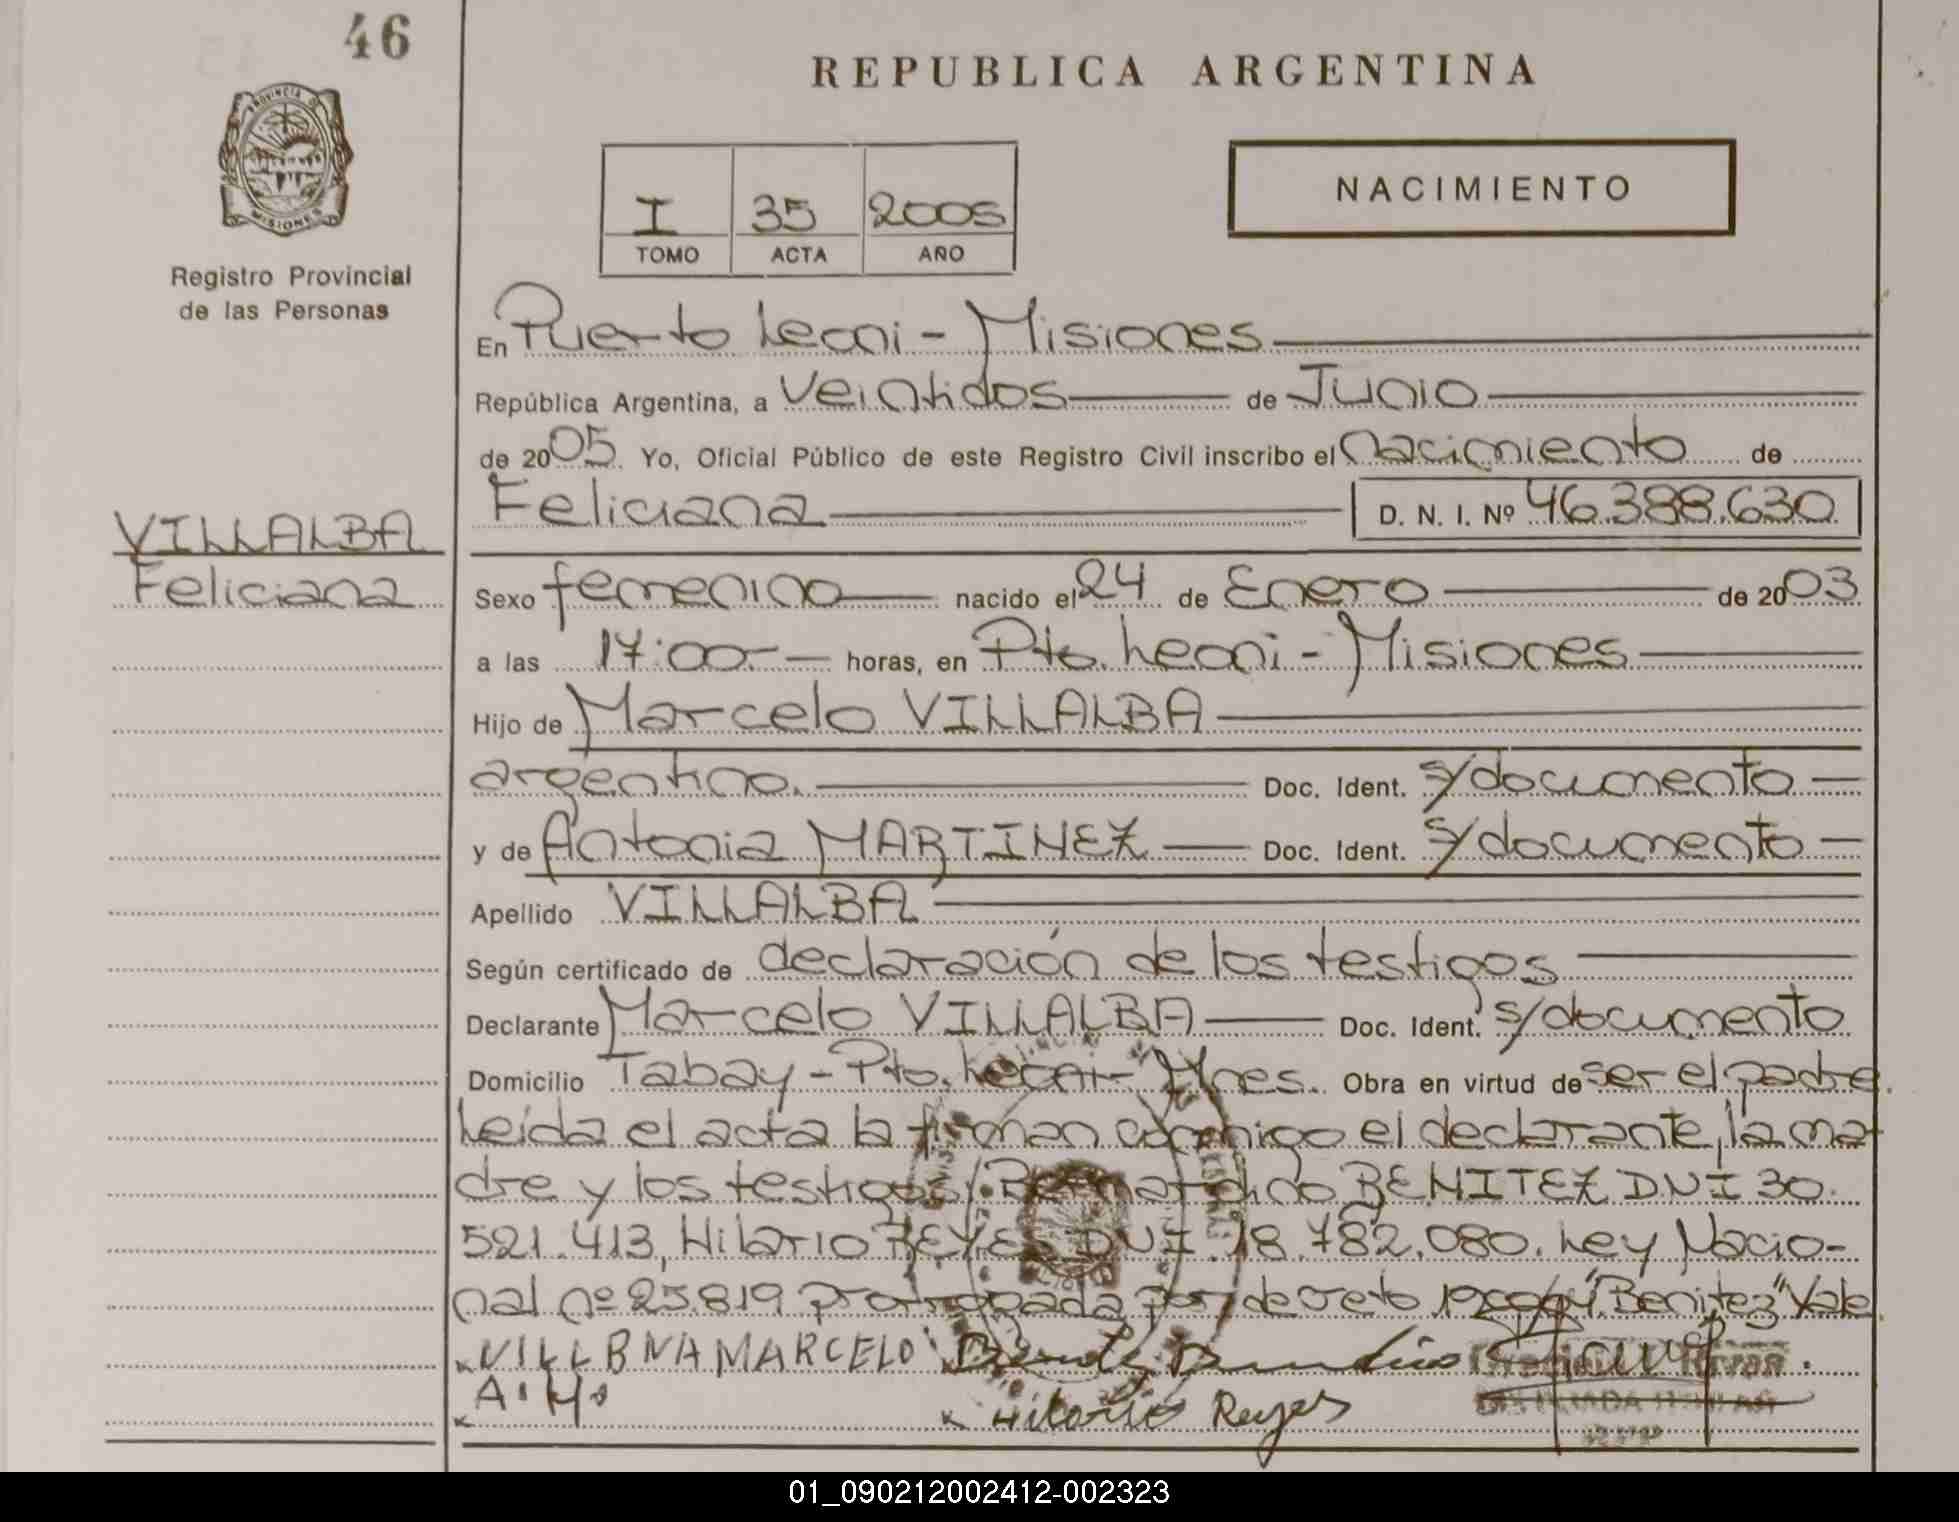 46
REPUBLICA ARGENTINA
PROVINCIA DE
MISIONES
Registro Provincial
de las Personas
I 35 2005
TOMO ACTA AÑO
NACIMIENTO
En Puerto Leoni - Misiones
República Argentina, a Veintidos de Junio
de 2005 Yo, Oficial Público de este Registro Civil inscribo el nacimiento de
Feliciana D. N. I. Nº 46.388.630
VILLALBA
Feliciana
Sexo femenino nacido el 24 de Enero de 2003
a las 17:00 horas, en Pto. Leoni - Misiones
Hijo de Marcelo VILLALBA
argentino. Doc. Ident. s/documento
y de Antonia MARTINEZ Doc. Ident. s/documento
Apellido VILLALBA
Según certificado de declaración de los testigos
Declarante Marcelo VILLALBA Doc. Ident. s/documento
Domicilio Tabay - Pto. Leoni - Mnes. Obra en virtud de ser el padre.
Leída el acta la firman conmigo el declarante, la ma-
dre y los testigos: Bernardino BENITEZ DNI 30.
521.413, Hilario REYES DNI 18.782.080. Ley Nacio-
nal nº 25.819 prorrogada por decreto "Benitez" Vale.
x VILLBNA MARCELO x
A. M. x Hilario Reyes
01_090212002412-002323